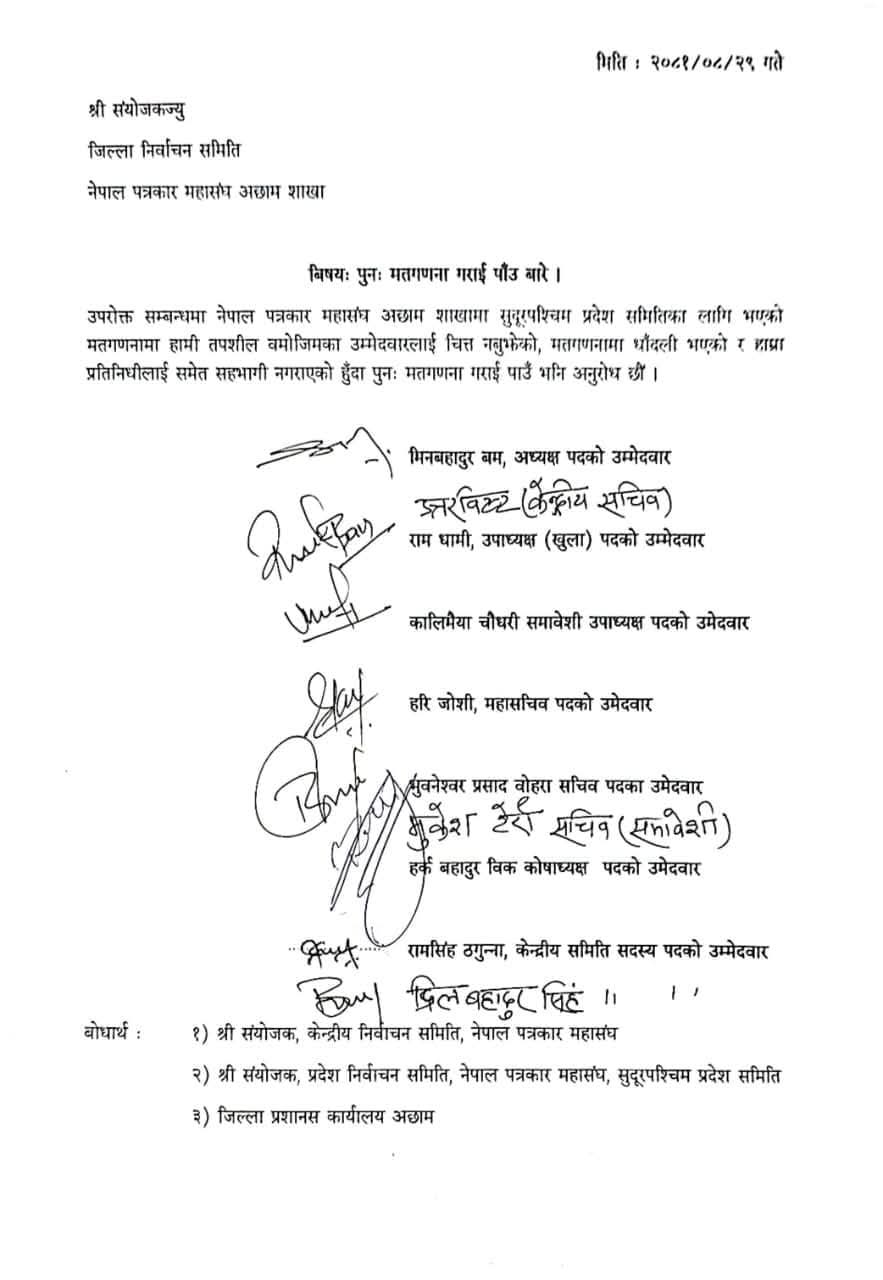 मिति : २०८१/०८/२९ गते
श्री संयोजकज्यु
जिल्ला निर्वाचन समिति
नेपाल पत्रकार महासंघ अछाम शाखा
बिषयः पुनः मतगणना गराई पाँउ बारे ।
उपरोक्त सम्बन्धमा नेपाल पत्रकार महासंघ अछाम शाखामा सुदूरपश्चिम प्रदेश समितिका लागि भएको
मतगणनामा हामी तपशील वमोजिमका उम्मेदवारलाई चित्त नबुझेको, मतगणनामा धाँदली भएको र हाम्रा
प्रतिनिधीलाई समेत सहभागी नगराएको हुँदा पुनः मतगणना गराई पाउँ भनि अनुरोध छौं ।
मिनबहादुर बम, अध्यक्ष पदको उम्मेदवार
(केन्द्रीय सचिव)
राम धामी, उपाध्यक्ष (खुला) पदको उम्मेदवार
कालिमैया चौधरी समावेशी उपाध्यक्ष पदको उमेदवार
हरि जोशी, महासचिव पदको उमेदवार
भुवनेश्वर प्रसाद वोहरा सचिव पदका उमेदवार
मुकेश टेरी सचिव (समावेशी)
हर्क बहादुर विक कोषाध्यक्ष पदको उमेदवार
रामसिंह ठगुन्ना, केन्द्रीय समिति सदस्य पदको उम्मेदवार
दिलबहादुर सिंह ।। ।।
बोधार्थ : १) श्री संयोजक, केन्द्रीय निर्वाचन समिति, नेपाल पत्रकार महासंघ
२) श्री संयोजक, प्रदेश निर्वाचन समिति, नेपाल पत्रकार महासंघ, सुदूरपश्चिम प्रदेश समिति
३) जिल्ला प्रशानस कार्यालय अछाम